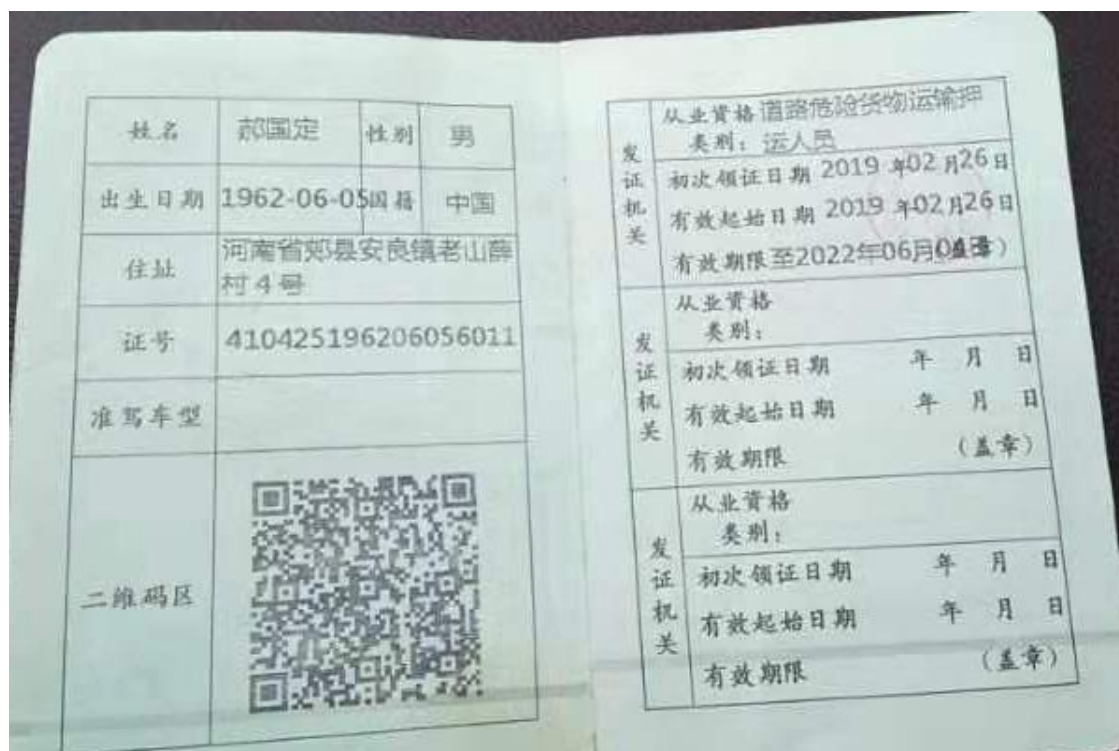 姓名 郝国定 性别 男
出生日期 1962-06-05 国籍 中国
住址 河南省郏县安良镇老山薛
村4号
证号 410425196206056011
准驾车型
二维码区
发证机关
从业资格 道路危险货物运输押
类别：运人员
初次领证日期 2019 年02 月26 日
有效起始日期 2019 年02 月26 日
有效期限至2022年06月04日
发证机关
从业资格
类别：
初次领证日期 年 月 日
有效起始日期 年 月 日
有效期限 （盖章）
发证机关
从业资格
类别：
初次领证日期 年 月 日
有效起始日期 年 月 日
有效期限 （盖章）